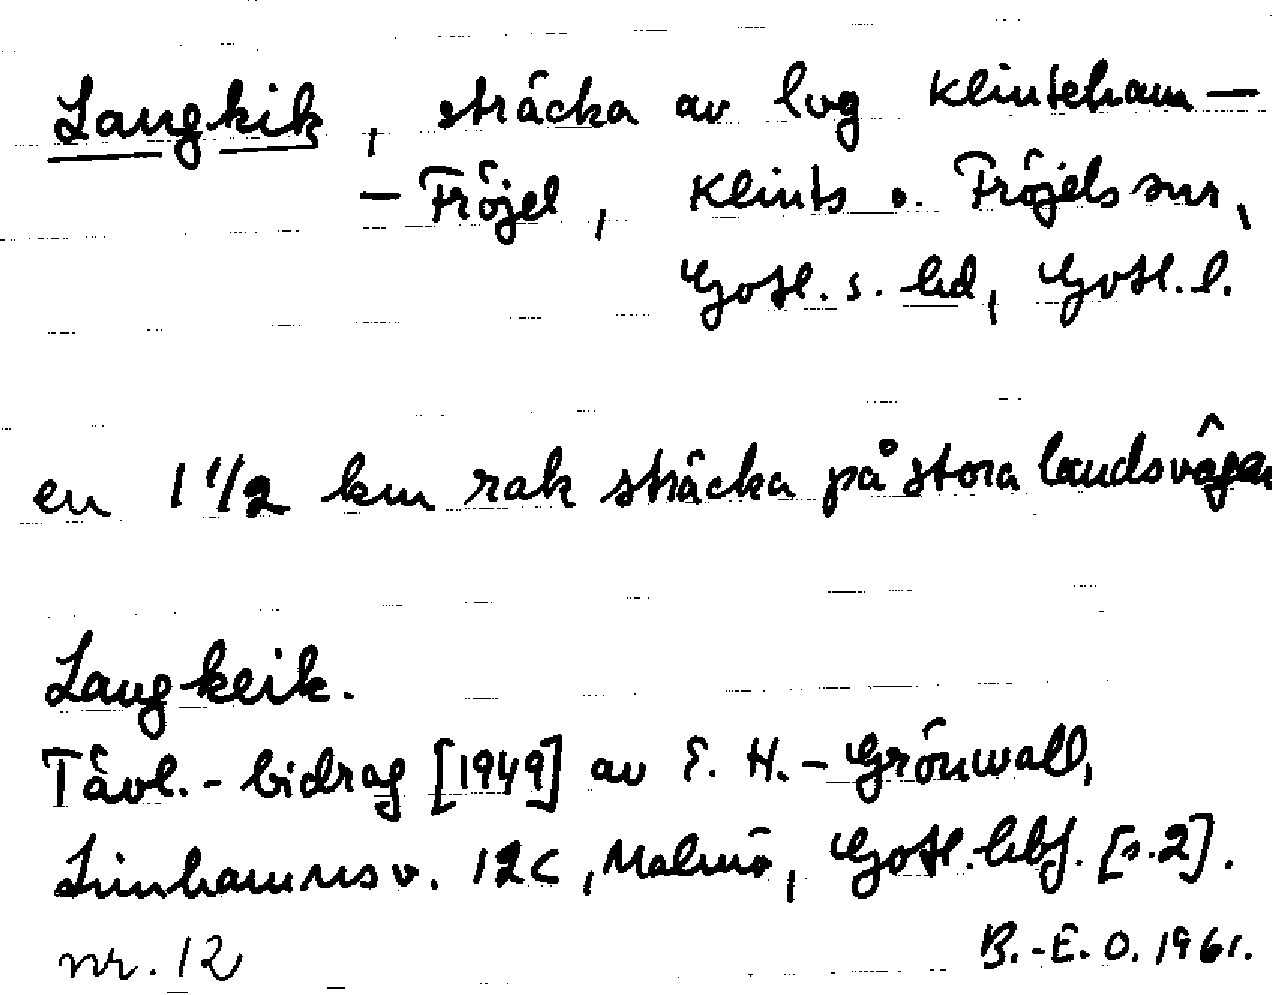 Langkik, sträcka av lvg Klintehamn—
—Fröjel, Klints o. Fröjels snr,
Gotl. s. hd, Gotl. l.
en 1 1/2 km rak sträcka på stora landsvägen
Langkeik.
Tävl.-bidrag [1949] av E. H.-Grönwall,
Limhamnsv. 12C, Malmö, Gotl. hbf. [s.2].
nr. 12
B.-E. O. 1961.